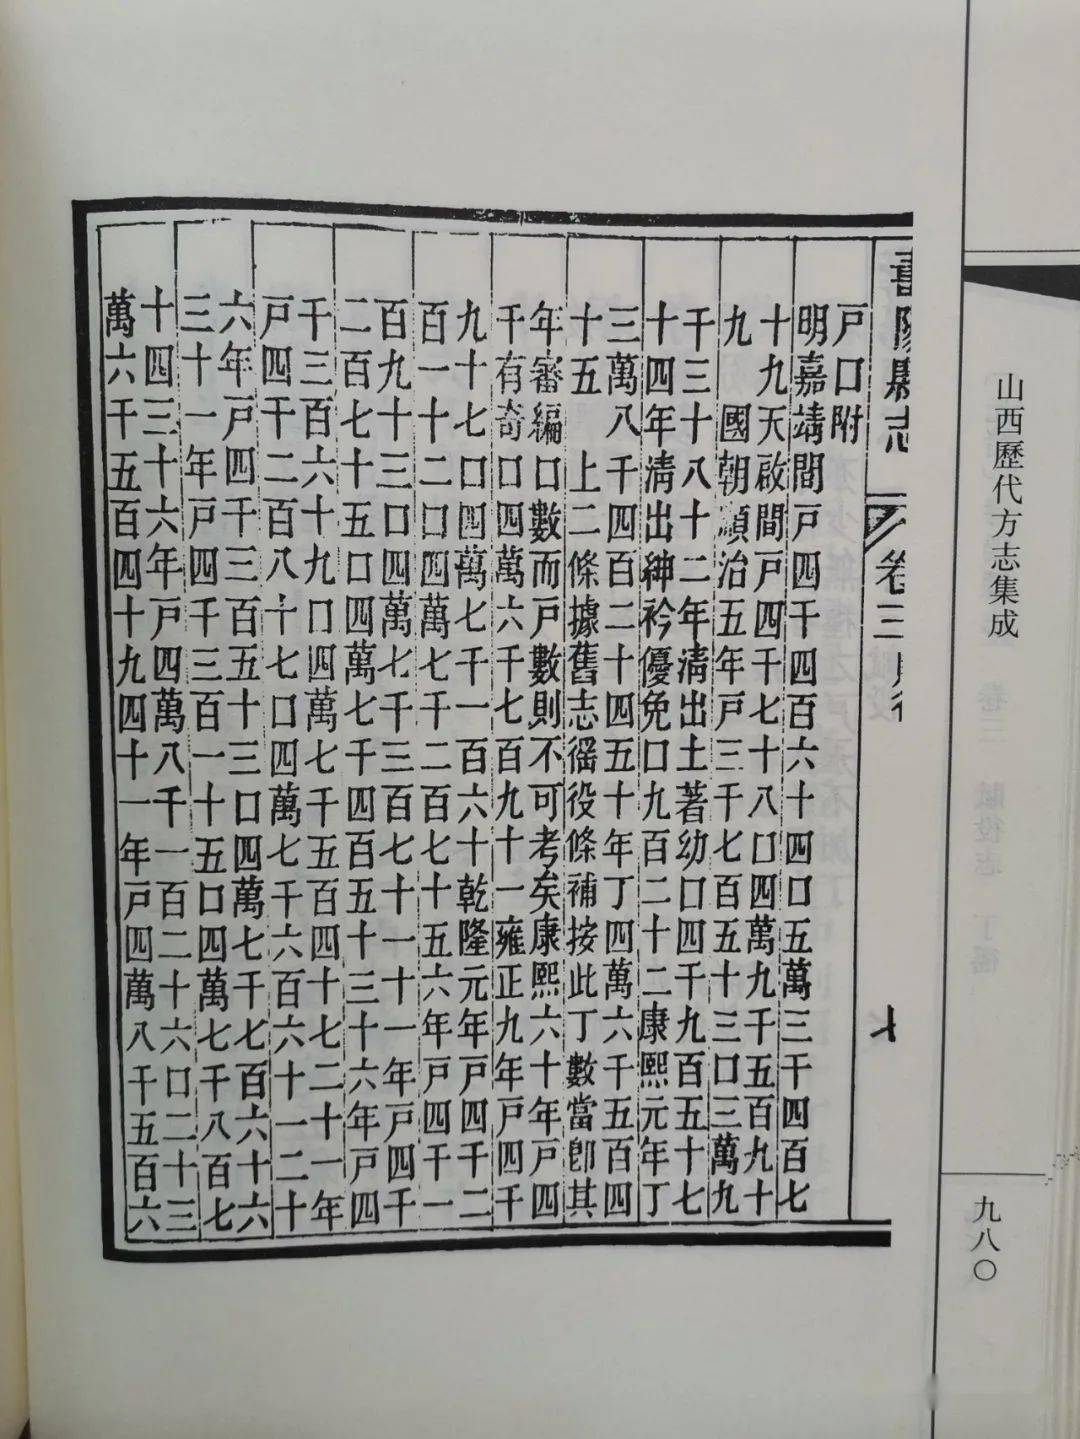 山西歷代方志集成
九八〇
壽陽縣志
卷三
戶口附
明嘉靖間戶四千四百六十四口五萬三千四百七
十九天啟間戶四千七十八口四萬九千五百九十
九　國朝順治五年戶三千七百五十三口三萬九
千三十八十二年清出土著幼口四千九百五十七
十四年清出紳衿優免口九百二十二康熙元年丁
三萬八千四百二十四五十年丁四萬六千五百四
十五　上二條據舊志徭役條補按此丁數當卽其
年審編口數而戶數則不可考矣康熙六十年戶四
千有奇口四萬六千七百九十一雍正九年戶四千
九十七口四萬七千一百六十乾隆元年戶四千二
百一十二口四萬七千二百七十五六年戶四千一
百九十三口四萬七千三百七十一十一年戶四千
二百七十五口四萬七千四百五十三十六年戶四
千三百六十九口四萬七千五百四十七二十一年
戶四千二百八十七口四萬七千六百六十一二十
六年戶四千三百五十三口四萬七千七百六十六
三十一年戶四千三百一十五口四萬七千八百七
十四三十六年戶四萬八千一百二十六口二十三
萬六千五百四十九四十一年戶四萬八千五百六